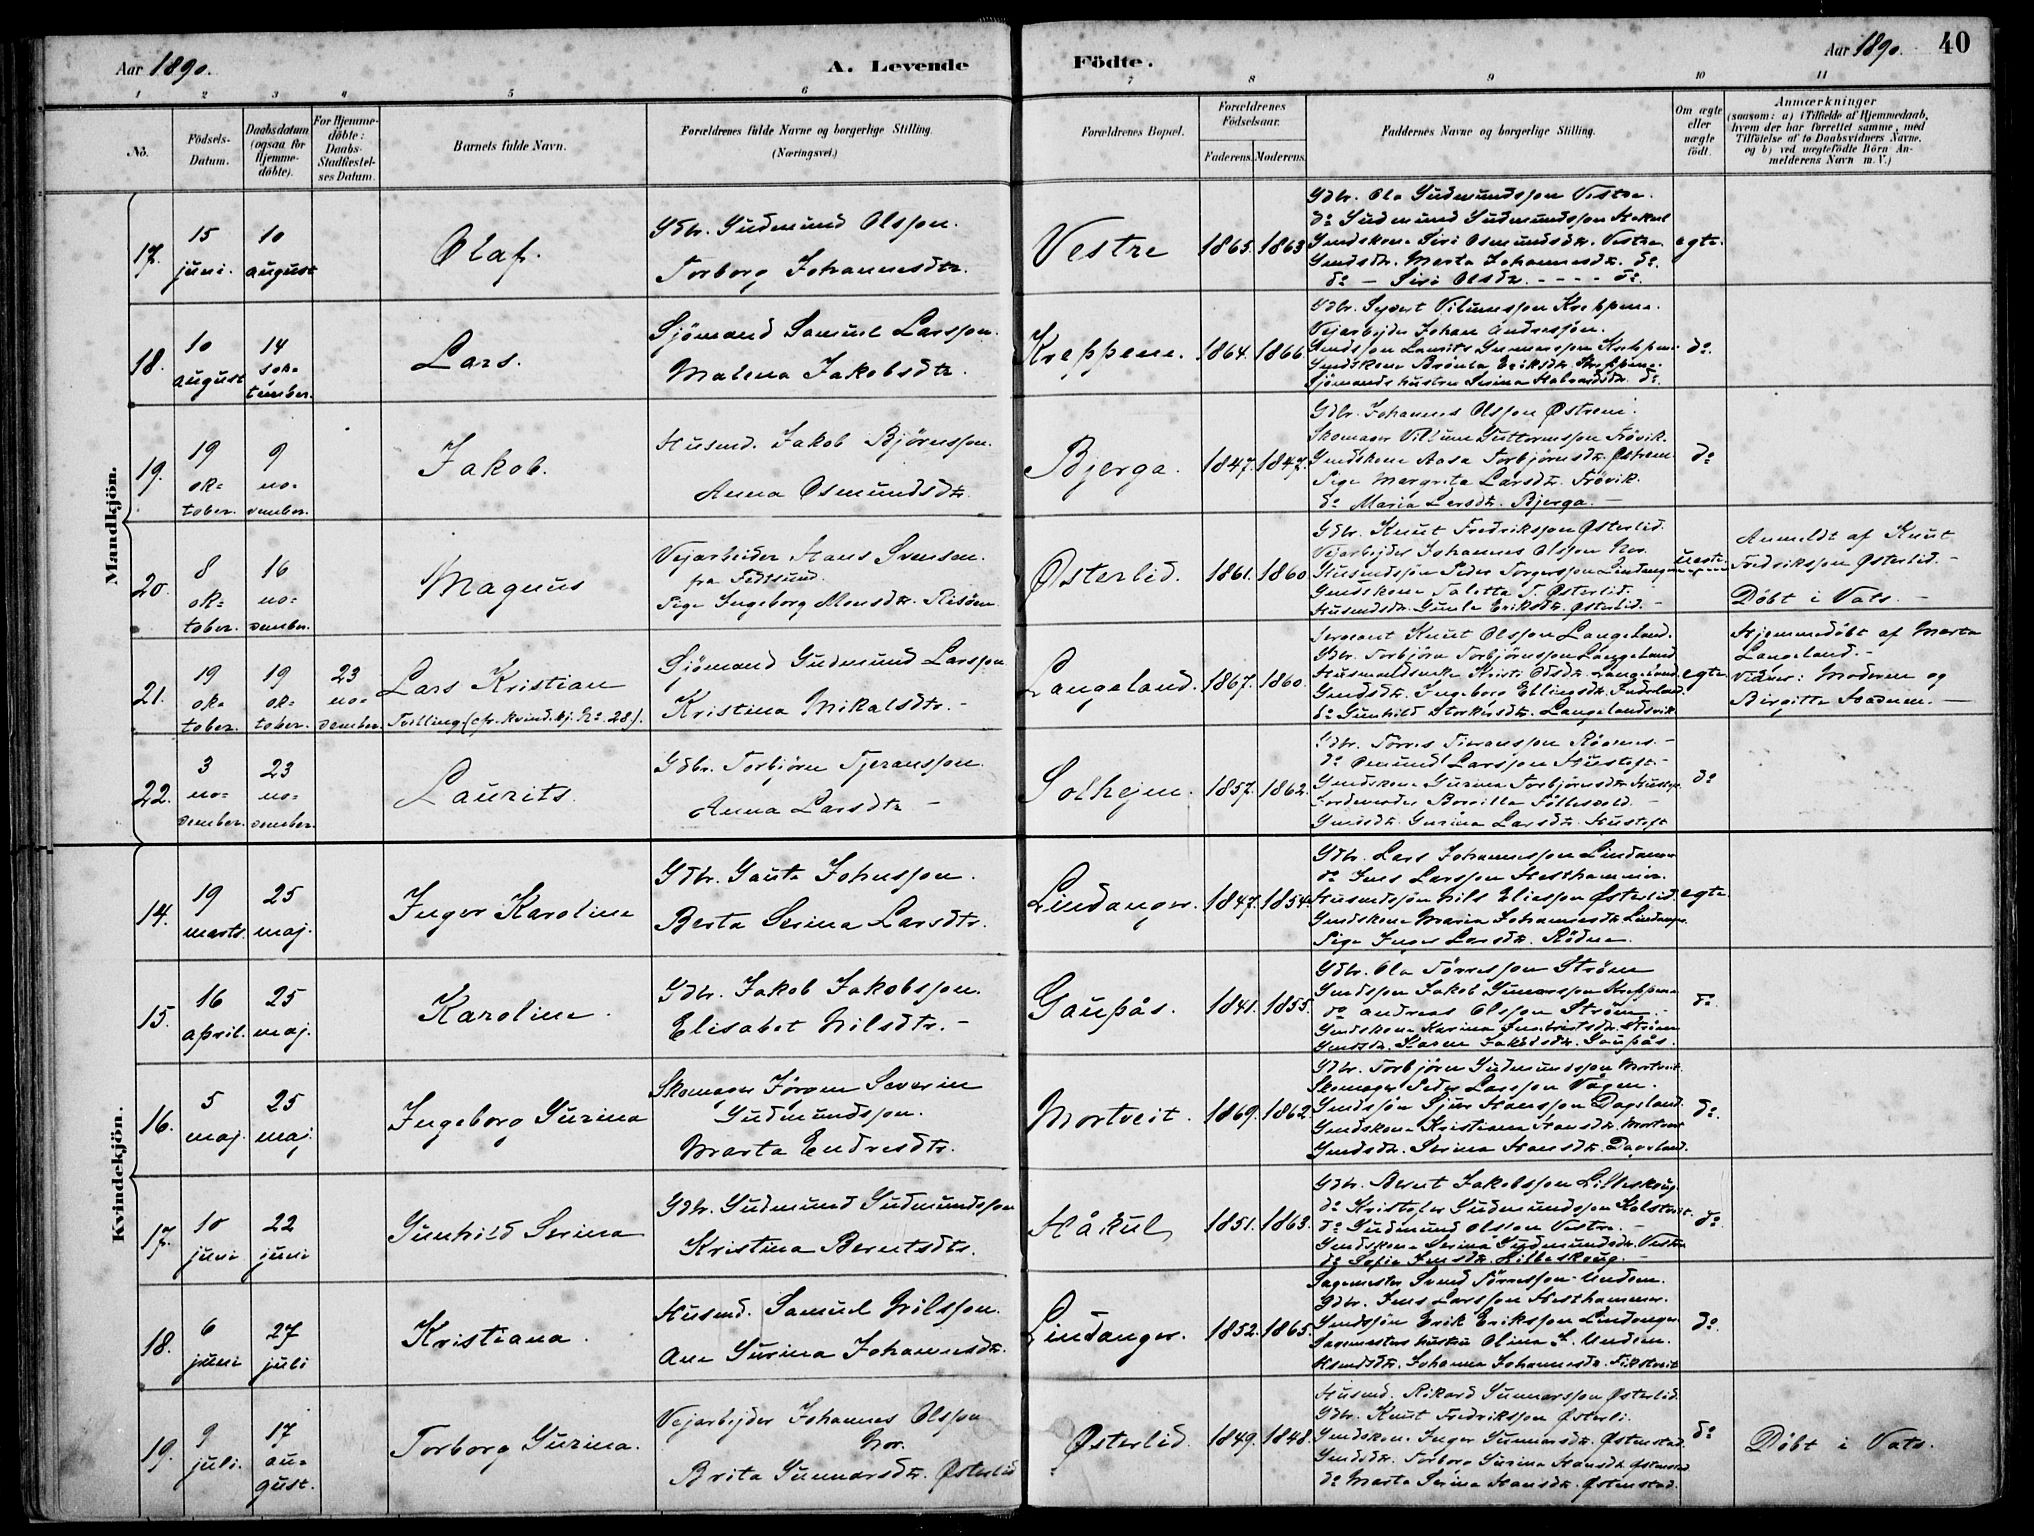 Aar 1890.
A. Levende
Födte.
Aar 1890.
40
1 2 3 4 5 6 7 8 9 10 11
No.
Födsels-Datum.
Daabsdatum (ogsaa for Hjemme-döbte).
For Hjemme-döbte: Daabs-Stadfæstel-ses Datum.
Barnets fulde Navn.
Forældrenes fulde Navne og borgerlige Stilling. (Næringsvei.)
Forældrenes Bopæl.
Forældrenes Födselsaar.
Faderens.
Moderens.
Faddernes Navne og borgerlige Stilling.
Om ægte eller uægte födt.
Anmærkninger
(saasom: a) i Tilfælde af Hjemmedaab,
hvem der har forrettet samme, med
Tilföielse af to Daabsvidners Navne,
og b) ved uægtefödte Börn An-
melderens Navn m. V.)
Mandkjön.
17. 15 juni. 10 august Olaf.
Gdbr. Gudmund Olsson.
Torborg Johannesdtr.
Vestre 1865. 1863
Gdbr. Ola Gudmundsson Vestre.
do Gudmund Gudmundsson Hakul
Gmdskone Siri Osmundsdtr. Vestre
Gmdsdtr. Marta Johannesdtr. do.
do - Siri Olsdtr. - - - - do.
egte.
18. 10 august 14 september. Lars.
Sjömand Samuel Larsson.
Malena Jakobsdtr.
Kreppene. 1864. 1866.
Gdbr. Syvert Vilumsson Kreppene.
Vejarbejder Johan Andressön.
Gmdssön Laurits Gunnarsson Kreppene
Gmdskone Brönla Eriksdtr. Kreppene
Sjömandshustru Serina Halvorsdtr. do.
do.
19. 19 oktober. 9 november. Jakob.
Husmd. Jakob Björnsson.
Anna Osmundsdtr.
Bjerga. 1847. 1847.
Gdbr. Johannes Olsson Østrem.
Skomager Villum Guttormsson Frövik.
Gmdskone Aasa Torbjörnsdtr. Østrem
Pige Margreta Larsdtr. Frövik.
do Maria Larsdtr. Bjerga. -
do
20. 8 oktober. 16 november. Magnus
Vejarbeider Hans Svensen.
fra Fedtsund.
Pige Ingeborg Monsdtr. Risöen.
Østerlid. 1861. 1860
Gdbr. Knut Fredriksson Østerlid.
Vejarbejder Johannes Olsson Nor.
Husmdssön Peder Torgersson Lindanger
Gmdskone Taletta T. Østerlid.
Husmdsdtr. Gunla Eriksdtr. Østerlid. -
uegte
Anmeldt af Knut
Fredriksson Østerlid. -
Döbt i Vats. -
21. 19 oktober. 19 oktober. 23 november. Lars Kristian
Tvilling (cfr. kvindekj. No. 28).
Sjömand Gudmund Larsson
Kristina Mikalsdtr. -
Langeland. 1867. 1860.
Sersjant Knut Olsson Langeland.
Gdbr. Torbjörn Torbjörnsson Langeland
Husmandsenke Kirsti Olsdtr. Langeland
Gmdsdtr. Ingeborg Ellingsdtr. Indreland
do Gunhild Storkersdtr. Langelandsvik
egte
Hjemmedöbt af Marta
Langeland. -
Vidner: Moderen og
Birgitte Hadnen. -
22. 3 november. 23 november. Laurits.
Gdbr. Torbjörn Tjeransson.
Anna Larsdtr -
Solhejm. 1857. 1862.
Gdbr. Torres Tjeransson Rönnes. -
do Omund Larsson Hustoft -
Gmdskone Gurina Torbjörnsdtr. Hustoft
Jordemoder Borgilla Föllesvold. -
Gmdsdtr. Gurina Larsdtr. Hustoft
do
Kvindekjön.
14. 19 marts. 25 maj. Inger Karoline
Gdbr. Gauta Johnsson.
Berta Serina Larsdtr.
Lindanger. 1847. 1854.
Gdbr. Lars Johannesson Lindanger
do Jens Larsson Hesthammer.
Husmdssön Nils Eliasson Østerlid.
Gmdskone Maria Johannesdtr. Lindanger
Pige Inger Larsdtr. Rödne.
egte.
15. 16 april. 25 maj. Karoline.
Gdbr. Jakob Jakobsson.
Elisabet Nilsdtr. -
Gaupås. 1841. 1855.
Gdbr. Ola Törresson Ström
Gmdssön Jakob Gunnarsson Kreppene
do Andreas Olsson Ström. -
Gmdskone Karina Ingebrigtsdtr. Ström
Gmdsdtr. Karen Jakobsdtr. Gaupås.
do.
16. 5 maj. 25 maj. Ingeborg Gurina
Skomager Jörgen Severin
Gudmundsson.
Marta Endresdtr.
Mortveit. 1869. 1862.
Gdbr. Torbjörn Gudmundsson Mortveit
Skomager Peder Larsson Vågen.
Gmdssön Sjur Hansson Dagsland.
Gmdskone Kristiana Hansdtr. Mortveit
Gmdsdtr. Serina Hansdtr. Dagsland.
do.
17. 10 juni 22 juni Gunhild Serina
Gdbr. Gudmund Gudmundsson
Kristina Berentsdtr.
Håkul 1851. 1863.
Gdbr. Berent Jakobsson Lilleskoug.
do Kristofer Gudmundsson Kolstveit.
do Gudmund Olsson Vestre. -
Gmdskone Serina Gudmundsdtr. Vestre
do Sofie Jensdtr. Lilleskoug. -
do.
18. 6 juni 27 juli Kristiana.
Husmd. Samuel Nilsson.
Ane Gurina Johannesdtr.
Lindanger. 1852. 1865.
Sagmester Svend Törresson Undem.
Gdbr. Jens Larsson Hesthammer.
Gmdssön Erik Eriksson Lindanger
Sagmesters hustru Olina L. Undem.
Husmdsdtr. Johanna Johannesdtr. Fikstveit
do.
19. 9 juli. 17 august. Torborg Gurina.
Vejarbejder Johannes Olsson
Nor.
Brita Gunnarsdtr. Østerlid
Østerlid. 1849. 1848.
Husmd. Rikard Gunnarsson Østerlid.
Gdbr. Knut Fredriksson Østerli.
Gmdskone Inger Gunnarsdtr. Østenstad.
Gmdsdtr. Torborg Gurina Hansdtr. Østenstad
do Marta Serina Hansdtr. Østenstad.
do
Döbt i Vats.